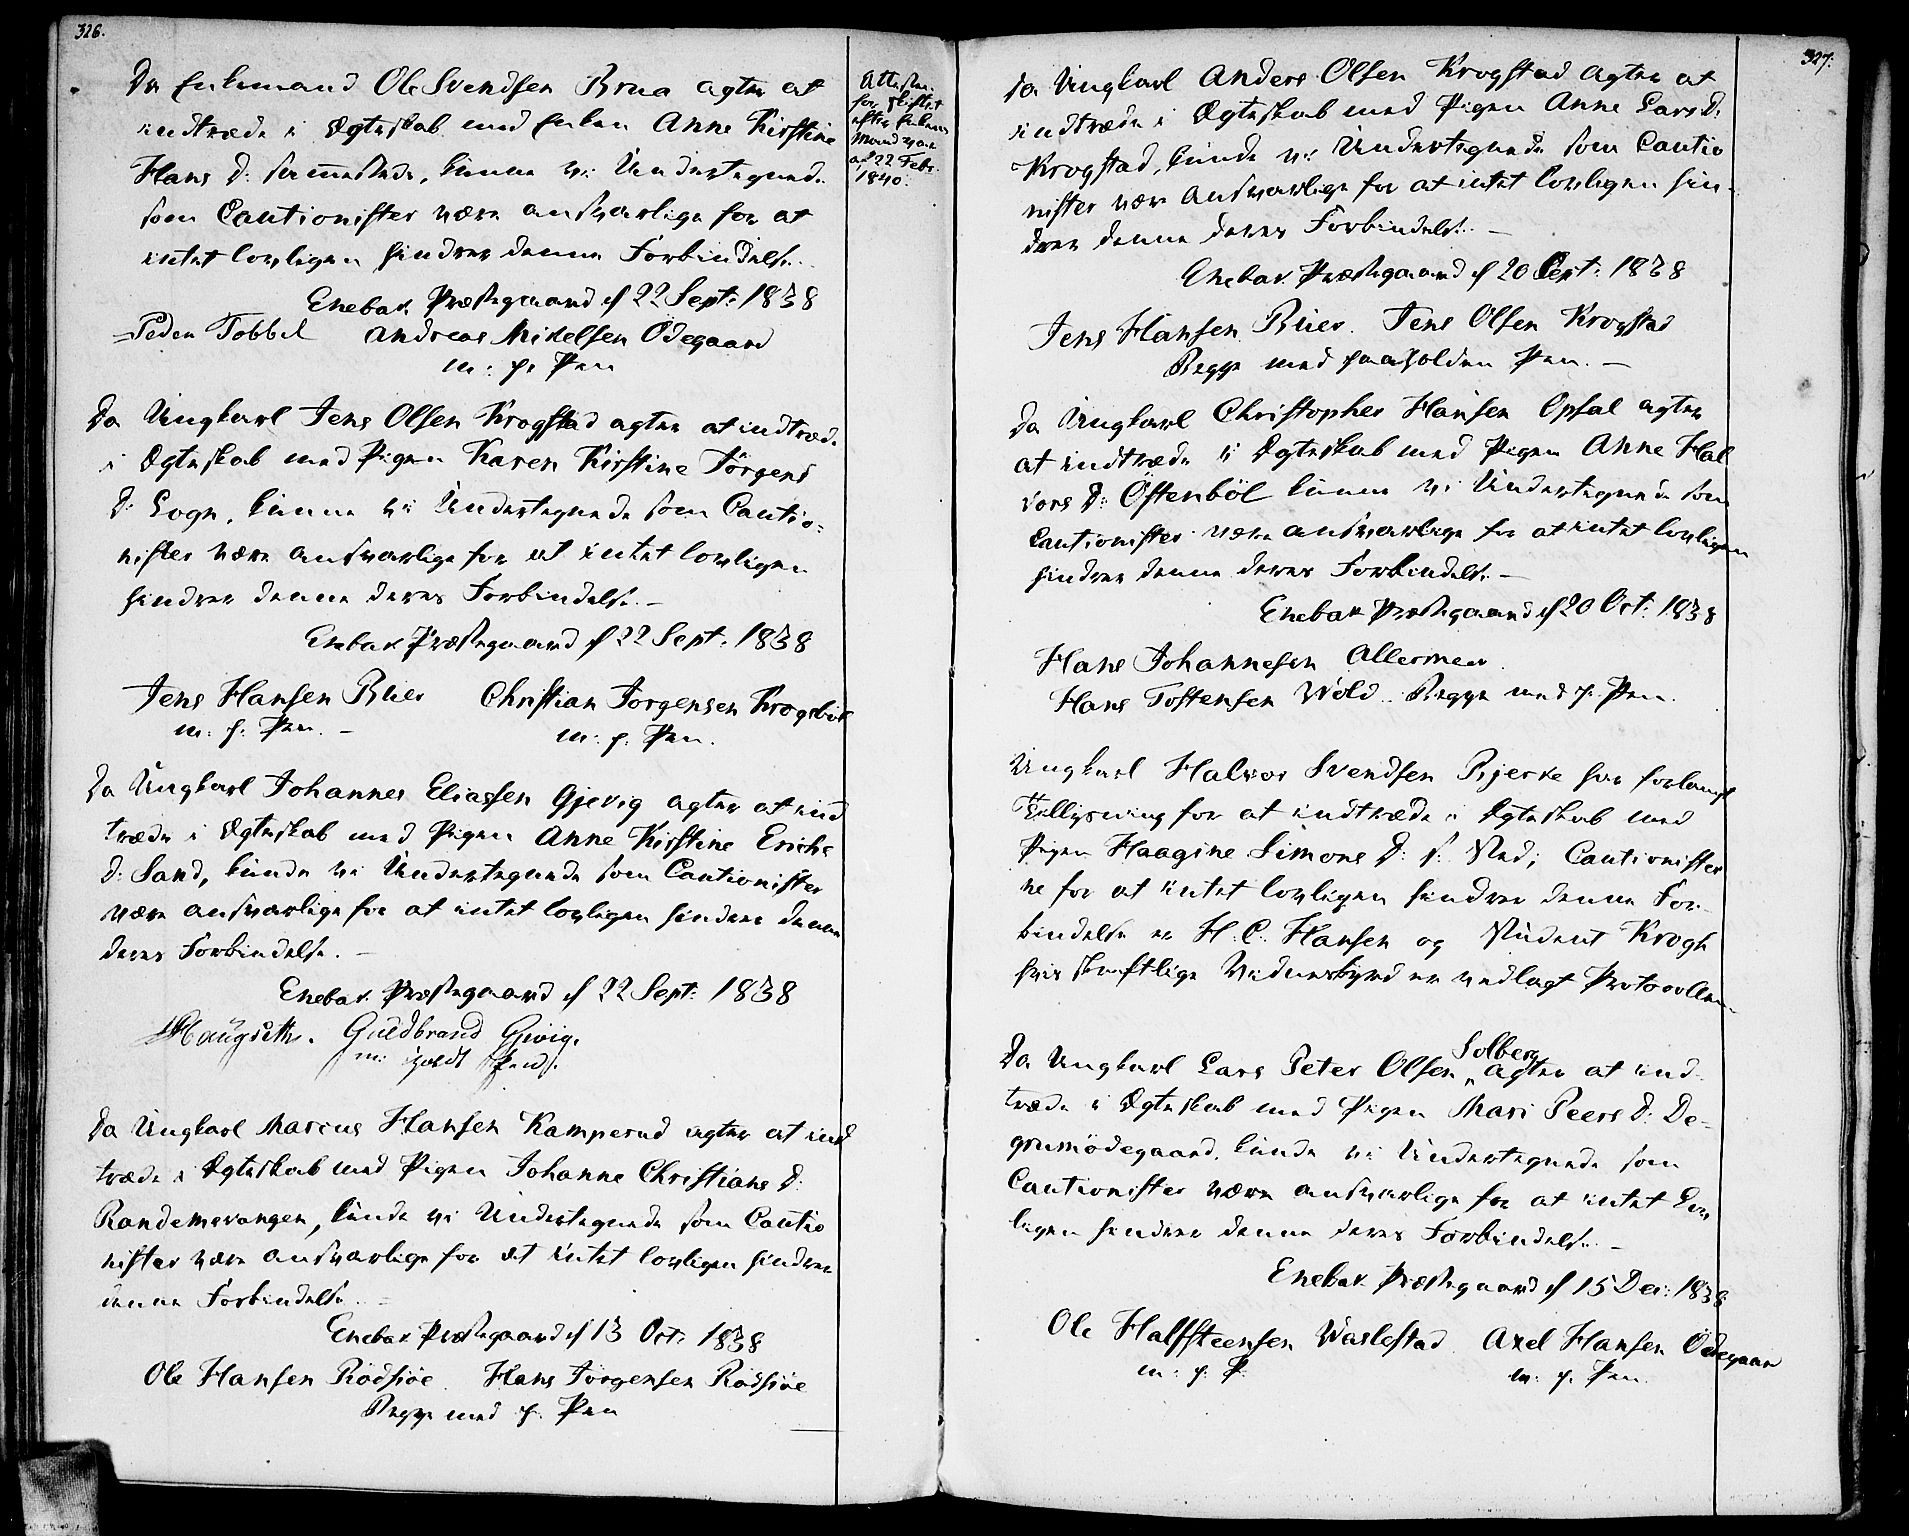 326.
Da Enkemand Ole Svendsen Brua agter at
indtræde i Ægteskab med Enken Anne Kirstine
Hans D: sammesteds, kunne vi Undertegnede
som Cautionister være ansvarlige for at
intet lovligen hindrer denne Forbindelse.
Enebak Præstegaard d 22 Sept: 1838
Peder Tobbel Andreas Mikelsen Ödegaard
m: f: Pen
Attesten
for skiftet
efter
Mand
22 Febr.
1840.
Da Ungkarl Jens Olsen Krogstad agter at indtræde
i Ægteskab med Pigen Karen Kirstine Jörgens
D: Sogn, kunne vi Undertegnede som Cautio-
nister være ansvarlige for at intet lovligen
hindrer denne deres Forbindelse. —
Enebak Præstegaard d 22 Sept: 1838
Jens Hansen Buer Christian Jorgensen Krogsböl
m: f: Pen. — m: f: Pen.
Da Ungkarl Johannes Eliassen Gjevig agter at ind
træde i Ægteskab med Pigen Anne Kirstine Erichs
D: Sand, kunde vi Undertegnede som Cautionister
være ansvarlige for at intet lovligen hindrer denne
deres Forbindelse. —
Enebak Præstegaard d 22 Sept: 1838
Haugseth. Guldbrand Gjevig.
m: holdt Pend.
Da Ungkarl Marcus Hansen Kamperud agter at ind
træde i Ægteskab med Pigen Johanne Christians D:
Randemsvangen, kunde vi Undertegnede som Cautio
nister være ansvarlige for at intet lovligen hindrer
denne Forbindelse. —
Enebak Præstegaard d 13 Oct: 1838
Ole Hansen Rödsiöe. Hans Jörgensen Rödsiöe
Begge med f. Pen
327.
Da Ungkarl Anders Olsen Krogstad agter at
indtræde i Ægteskab med Pigen Anne Lars D:
Krogstad, kunde vi Undertegnede som Cautio
nister være ansvarlige for at intet lovligen hin-
drer denne deres Forbindelse. —
Enebak Præstegaard d 20 Sept: 1838
Jens Hansen Buer. Jens Olsen Krogstad
Begge med paaholden Pen. —
Da Ungkarl Christopher Hansen Opsal agter
at indtræde i Ægteskab med Pigen Anne Hal
vors D: Östenböl kunne vi Undertegnede som
Cautionister være ansvarlige for at intet lovligen
hindrer denne deres Forbindelse. —
Enebak Præstegaard d 20 Oct: 1838
Hans Johannesen Allermeer.
Hans Tostensen Wold. Begge med f. Pen.
Ungkarl Halvor Svendsen Bjerke har forlangt
Tillysning for at indtræde i Ægteskab med
Pigen Haagine Simons D: s: Sted; Cautionister
ne for at intet lovligen hindrer denne For-
bindelse er H. C. Hansen og Student Krogh
hvis skriftlige Vidnesbyrd er vedlagt Protocollen.
Da Ungkarl Lars Peter Olsen Solberg agter at ind-
træde i Ægteskab med Pigen Mari Peers D: De-
grumödegaard, kunde vi Undertegnede som
Cautionister være ansvarlige for at intet lov
ligen hindrer denne deres Forbindelse. —
Enebak Præstegaard d 15 Dec: 1838
Ole Halfsteensen Warlestad Axel Hansen Ödegaard
m: f: P. m: f. Pen.